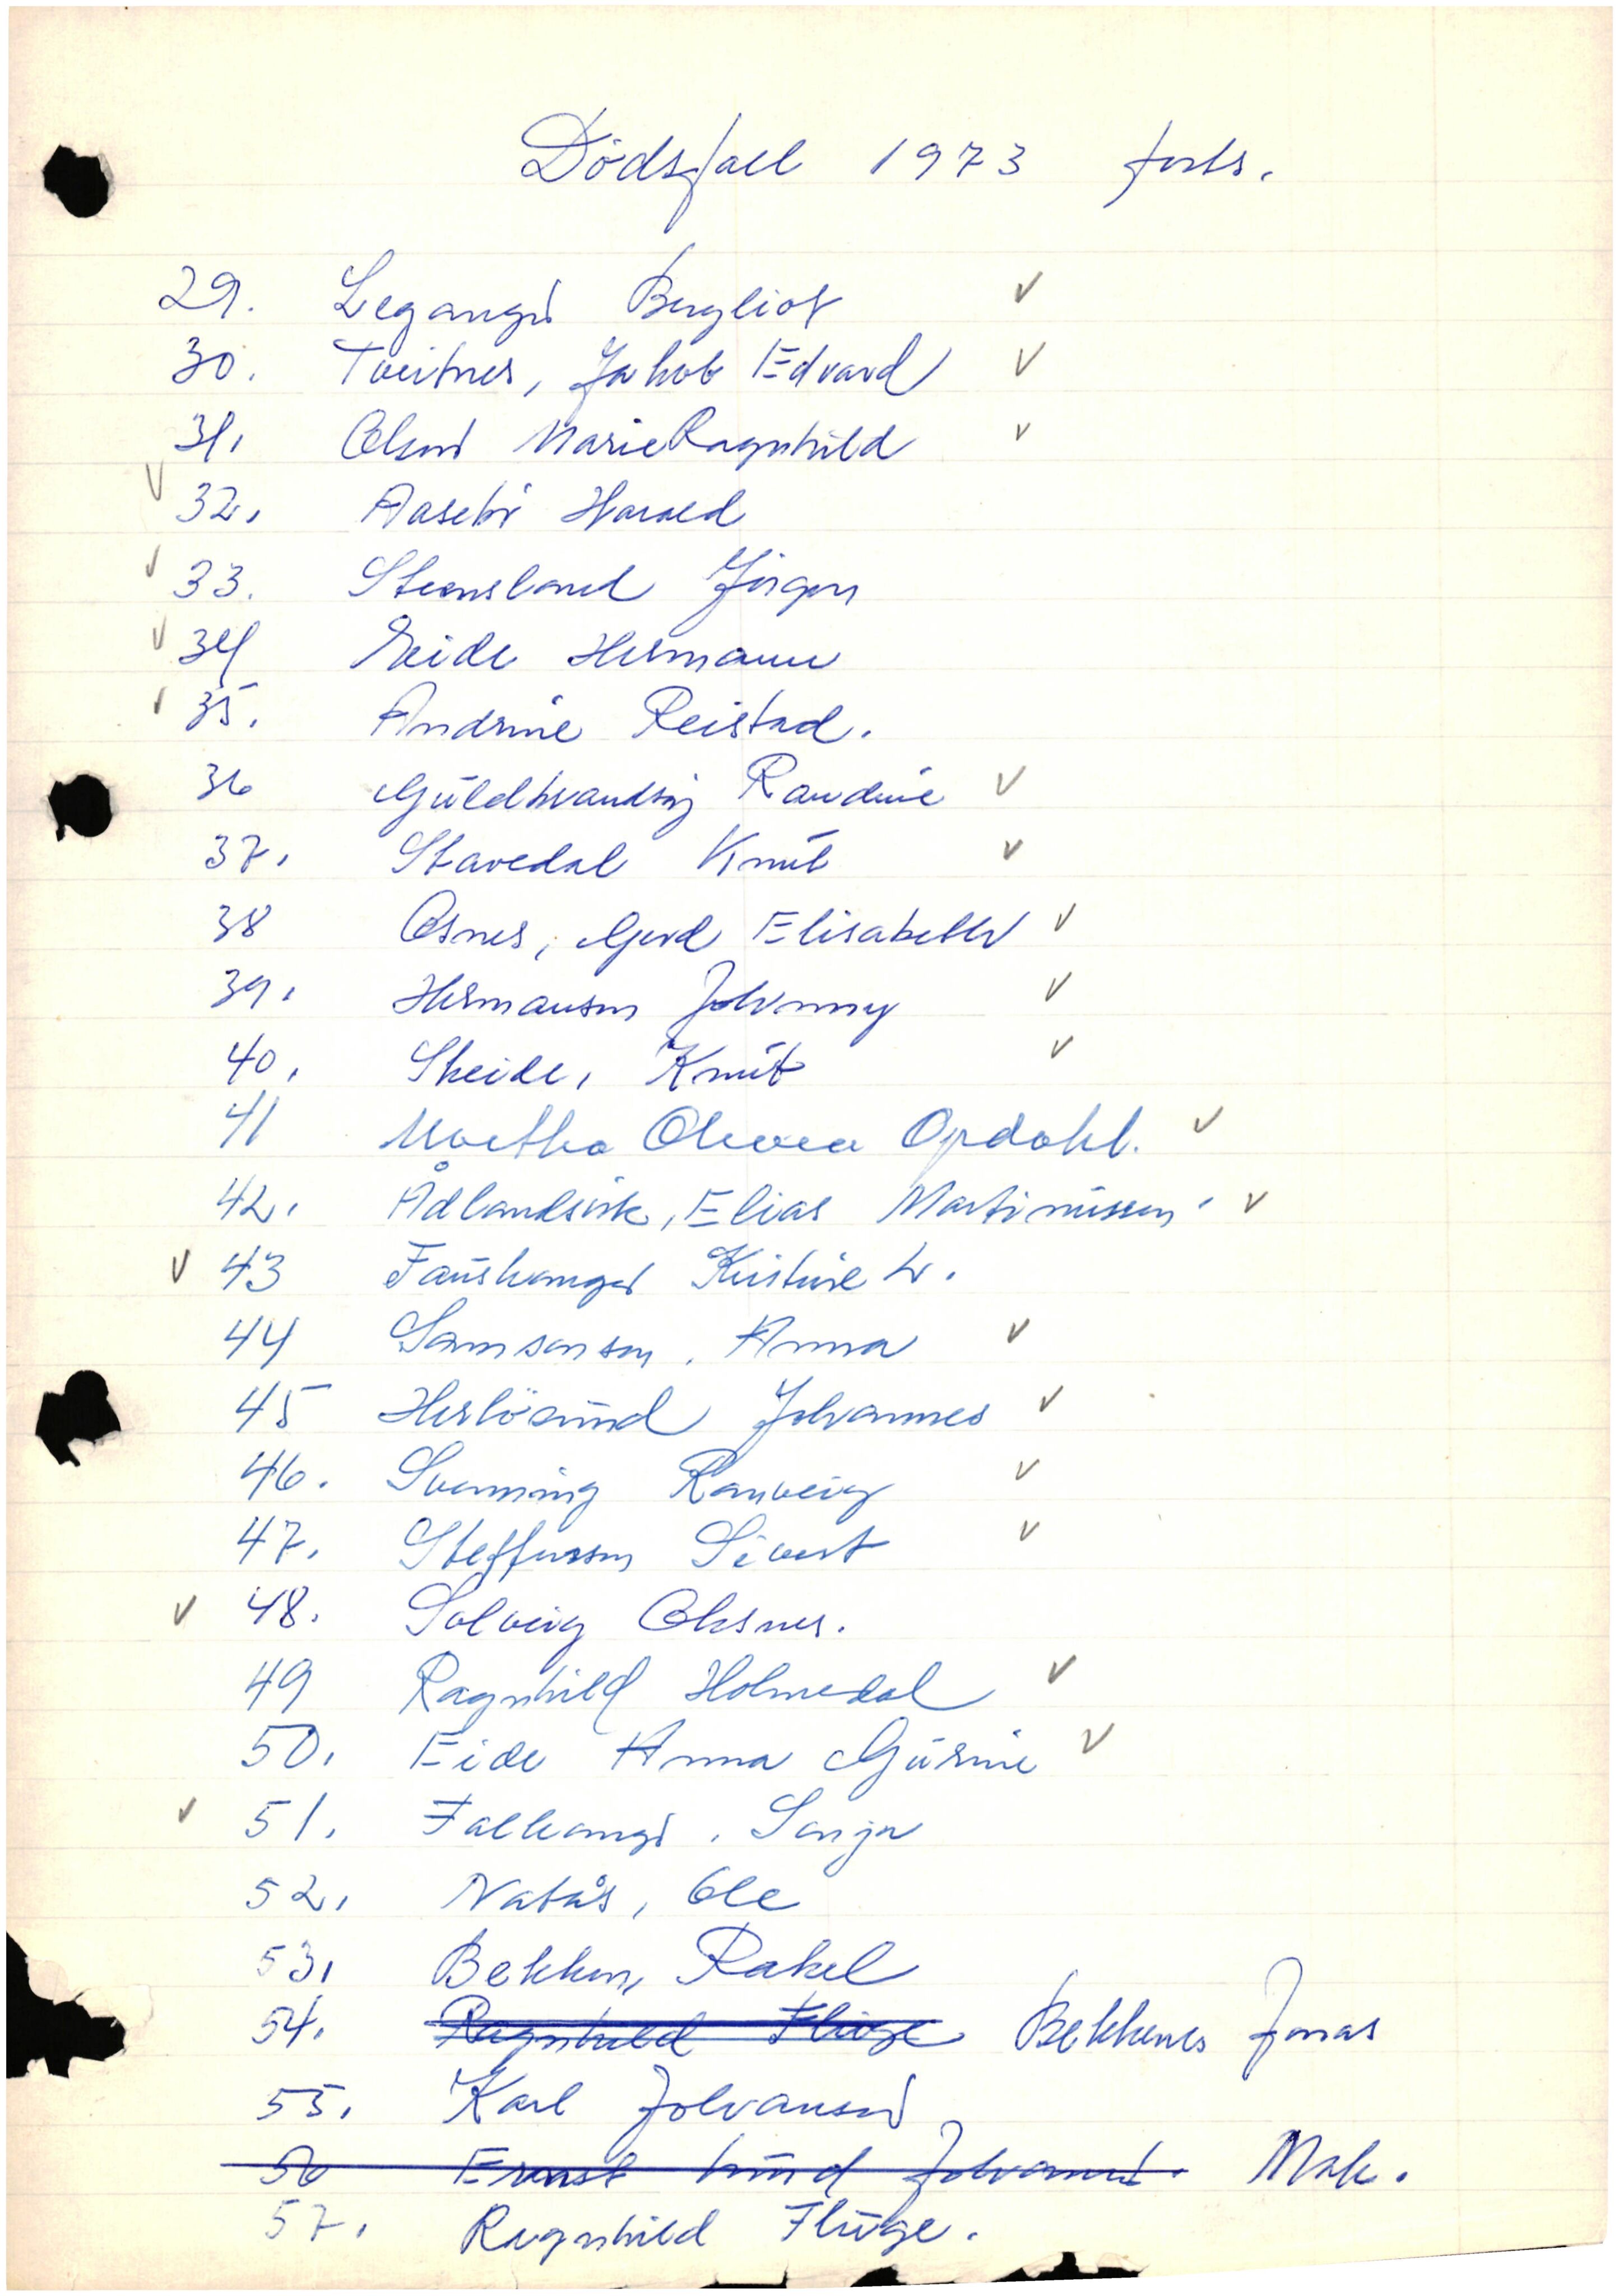 Dödsfall 1973 forts.
29. Leganger Bergliot V
30. Tveitnes, Jakob Edvard V
31. Olsen Marie Ragnhild V
V 32. Aasebö Harald
V 33. Steensland Jörgen
V 34 Eide Hermann
V 35. Andrine Reistad.
36 Guldbrandsöy Randine V
37. Stavedal Knut V
38 Osnes, Gerd Elisabeth V
39. Hermansen Johnny V
40. Skeide, Knut V
41 Martha Olevea Opdahl. V
42. Ådlandsvik, Elias Martinussen. V
V 43 Fauskanger Kristine
44 Samsonsen, Anna V
45 Herlösund Johannes V
46. Svenning Ranveig V
47. Steffensen Sivert V
V 48. Solveig Oksnes.
49 Ragnhild Holmedal V
50. Eide Anna Gurine V
V 51. Falkanger, Sonja
52. Natås, Ole
53. Bekken, Rakel
54. Ragnhild Fluge Bekkenes Jonas
55. Karl Johansen
56 Ernst Lund Johannes. Mak.
57. Ragnhild Fluge.